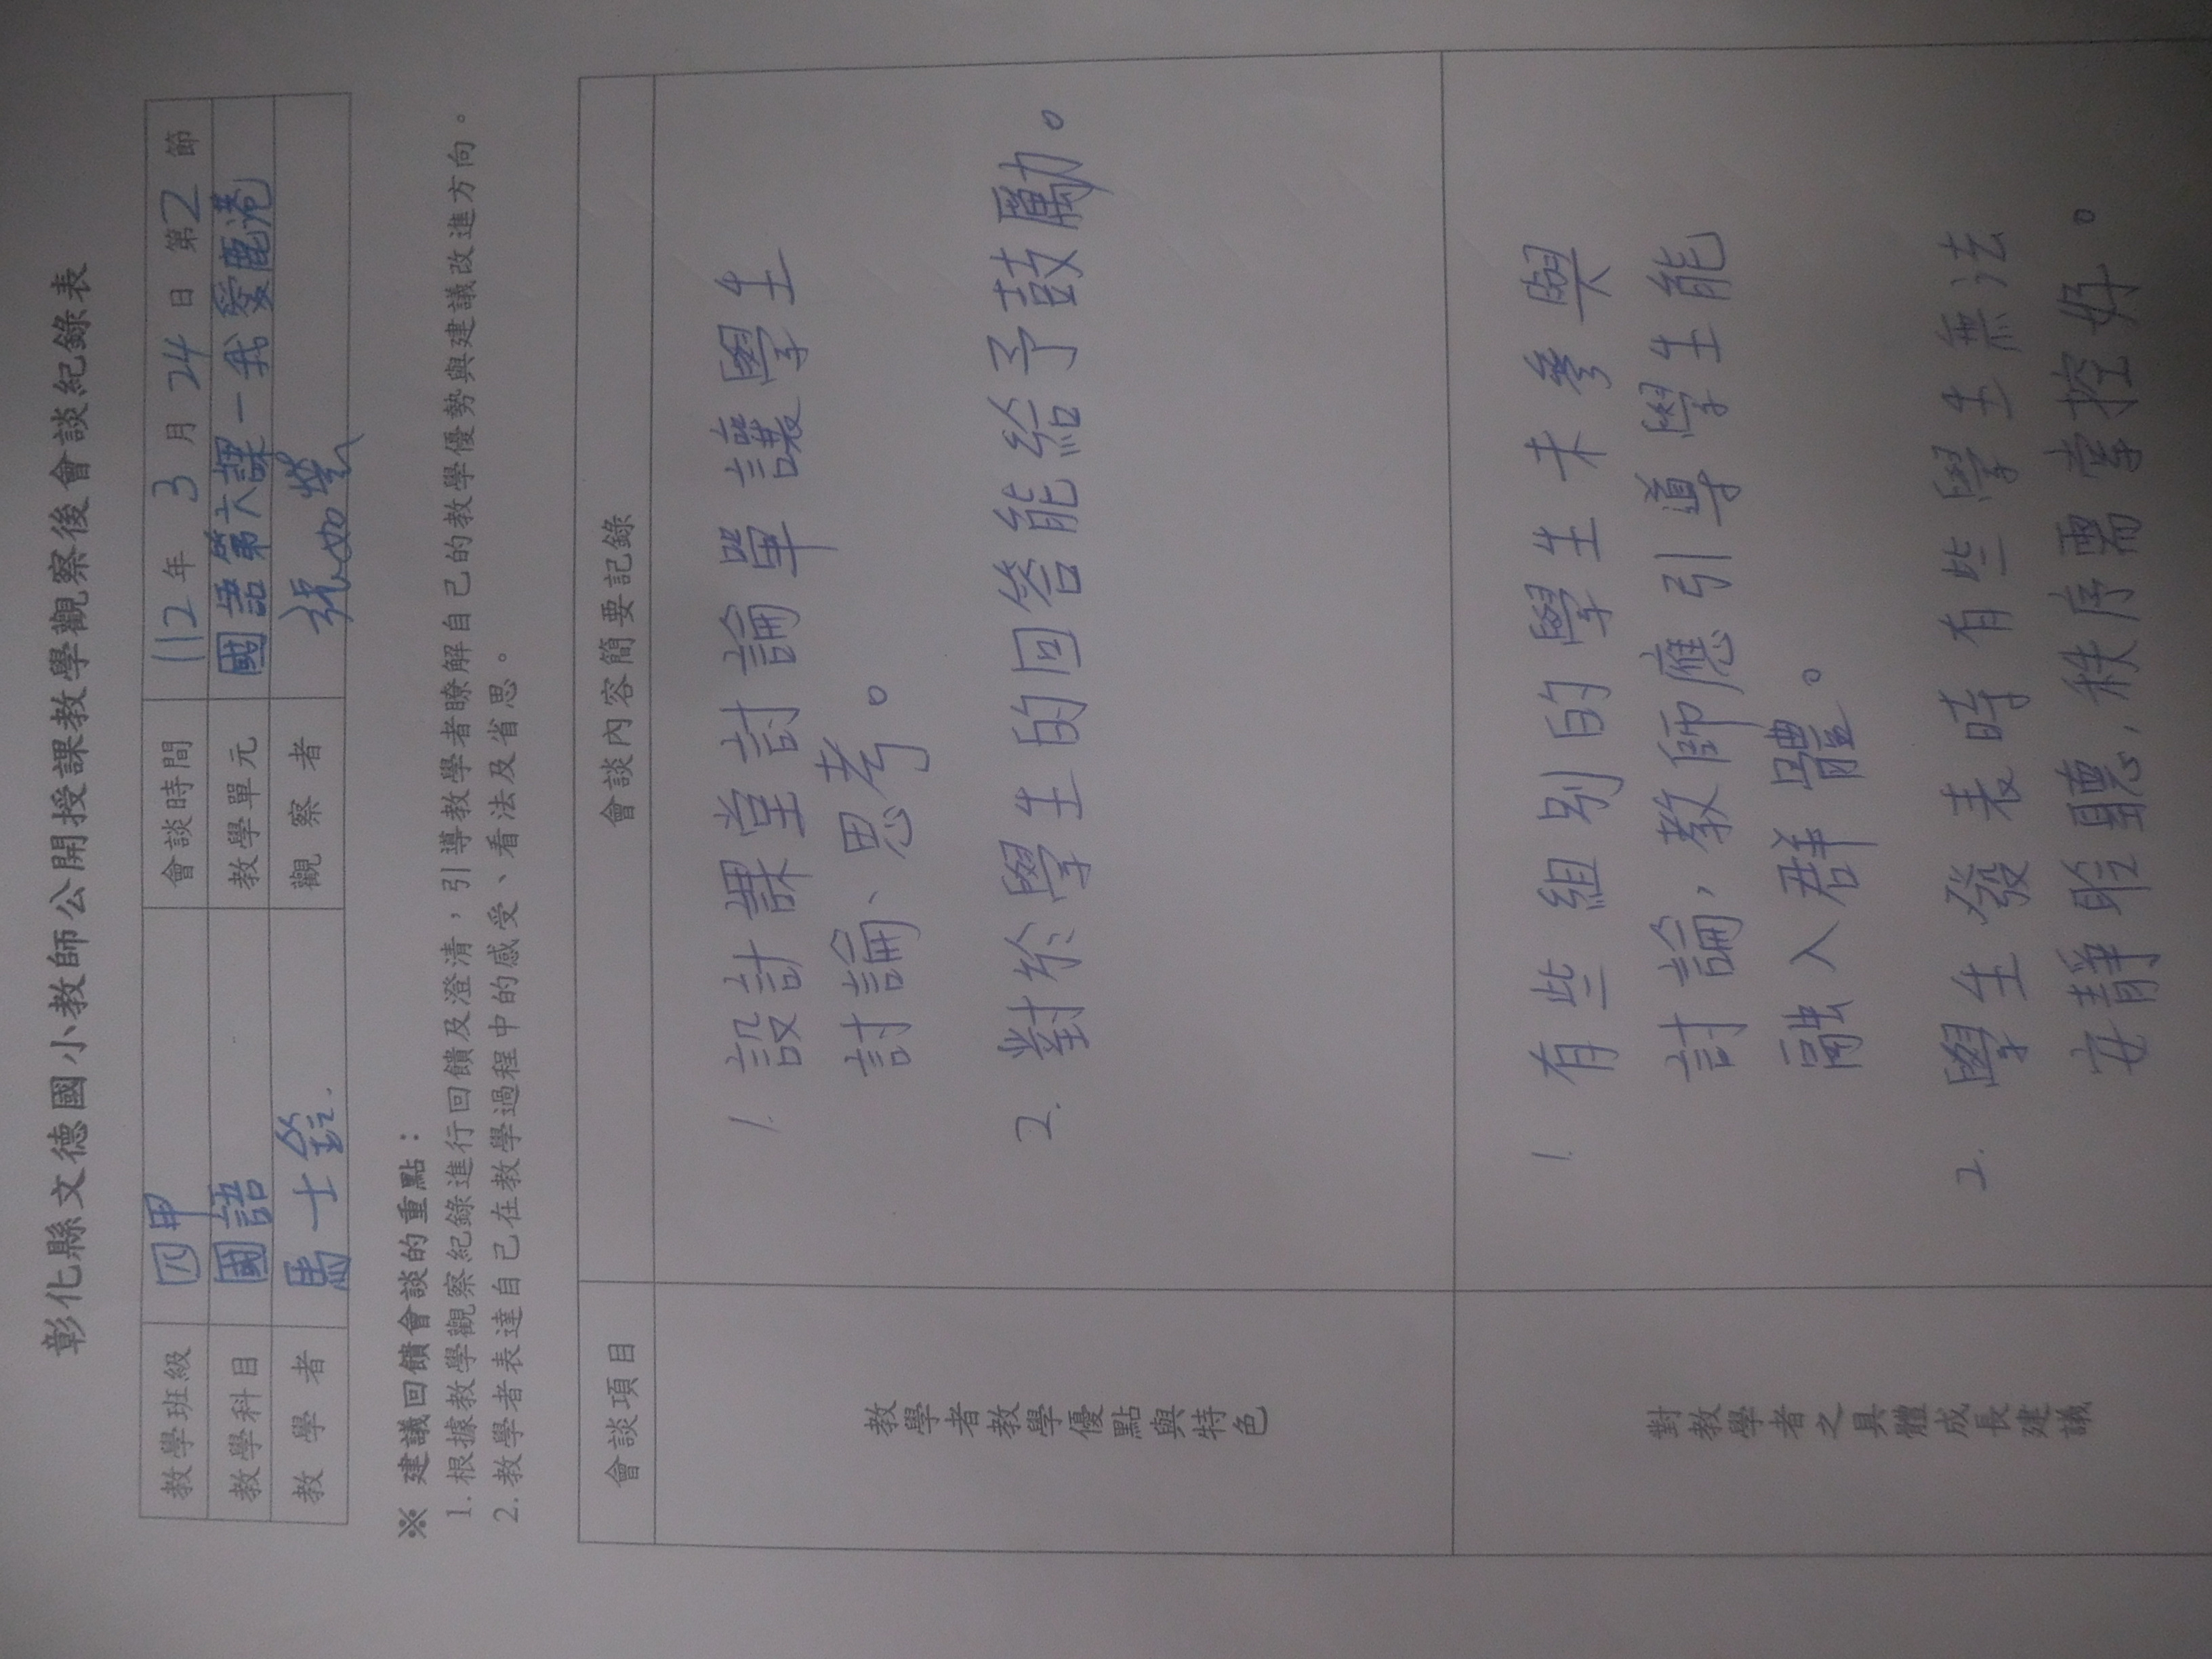 彰化縣文德國小教師公開授課教學觀察後會談紀錄表
教學班級 四甲 會談時間 112年 3月 24日 第2節
教學科目 國語 教學單元 國語第六課-我愛鹿港
教 學 者 馬士銓. 觀 察 者 張如瑩
※ 建議回饋會談的重點：
1.根據教學觀察紀錄進行回饋及澄清，引導教學者瞭解自己的教學優勢與建議改進方向。
2.教學者表達自己在教學過程中的感受、看法及省思。
會談項目 會談內容簡要記錄
教學者教學優點與特色
1. 設計課堂討論單讓學生
討論、思考。
2. 對於學生的回答能給予鼓勵。
對教學者之具體成長建議
1. 有些組別的學生未參與
討論，教師應引導學生能
融入群體。
2. 學生發表時有些學生無法
安靜聆聽，秩序需掌控好。